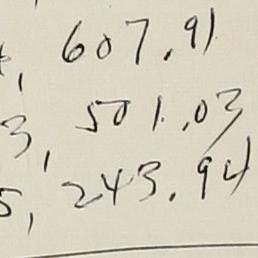 , 607.91
3, 501.03
5, 243.94